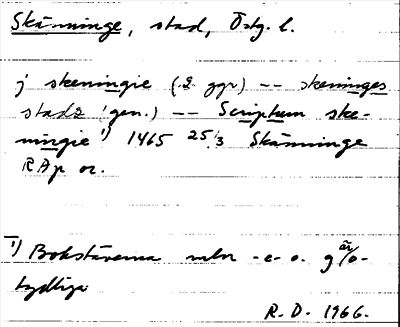 Skänninge, stad, Östg. l.
j skeningie (2 ggr) -- skeninges
stadz (gen.) -- Scriptum ske-
ningie ¹) 1465 25/3 Skänninge
RAp or.
¹) Bokstäverna mln -e- o. g är o-
tydliga
R. D. 1966.